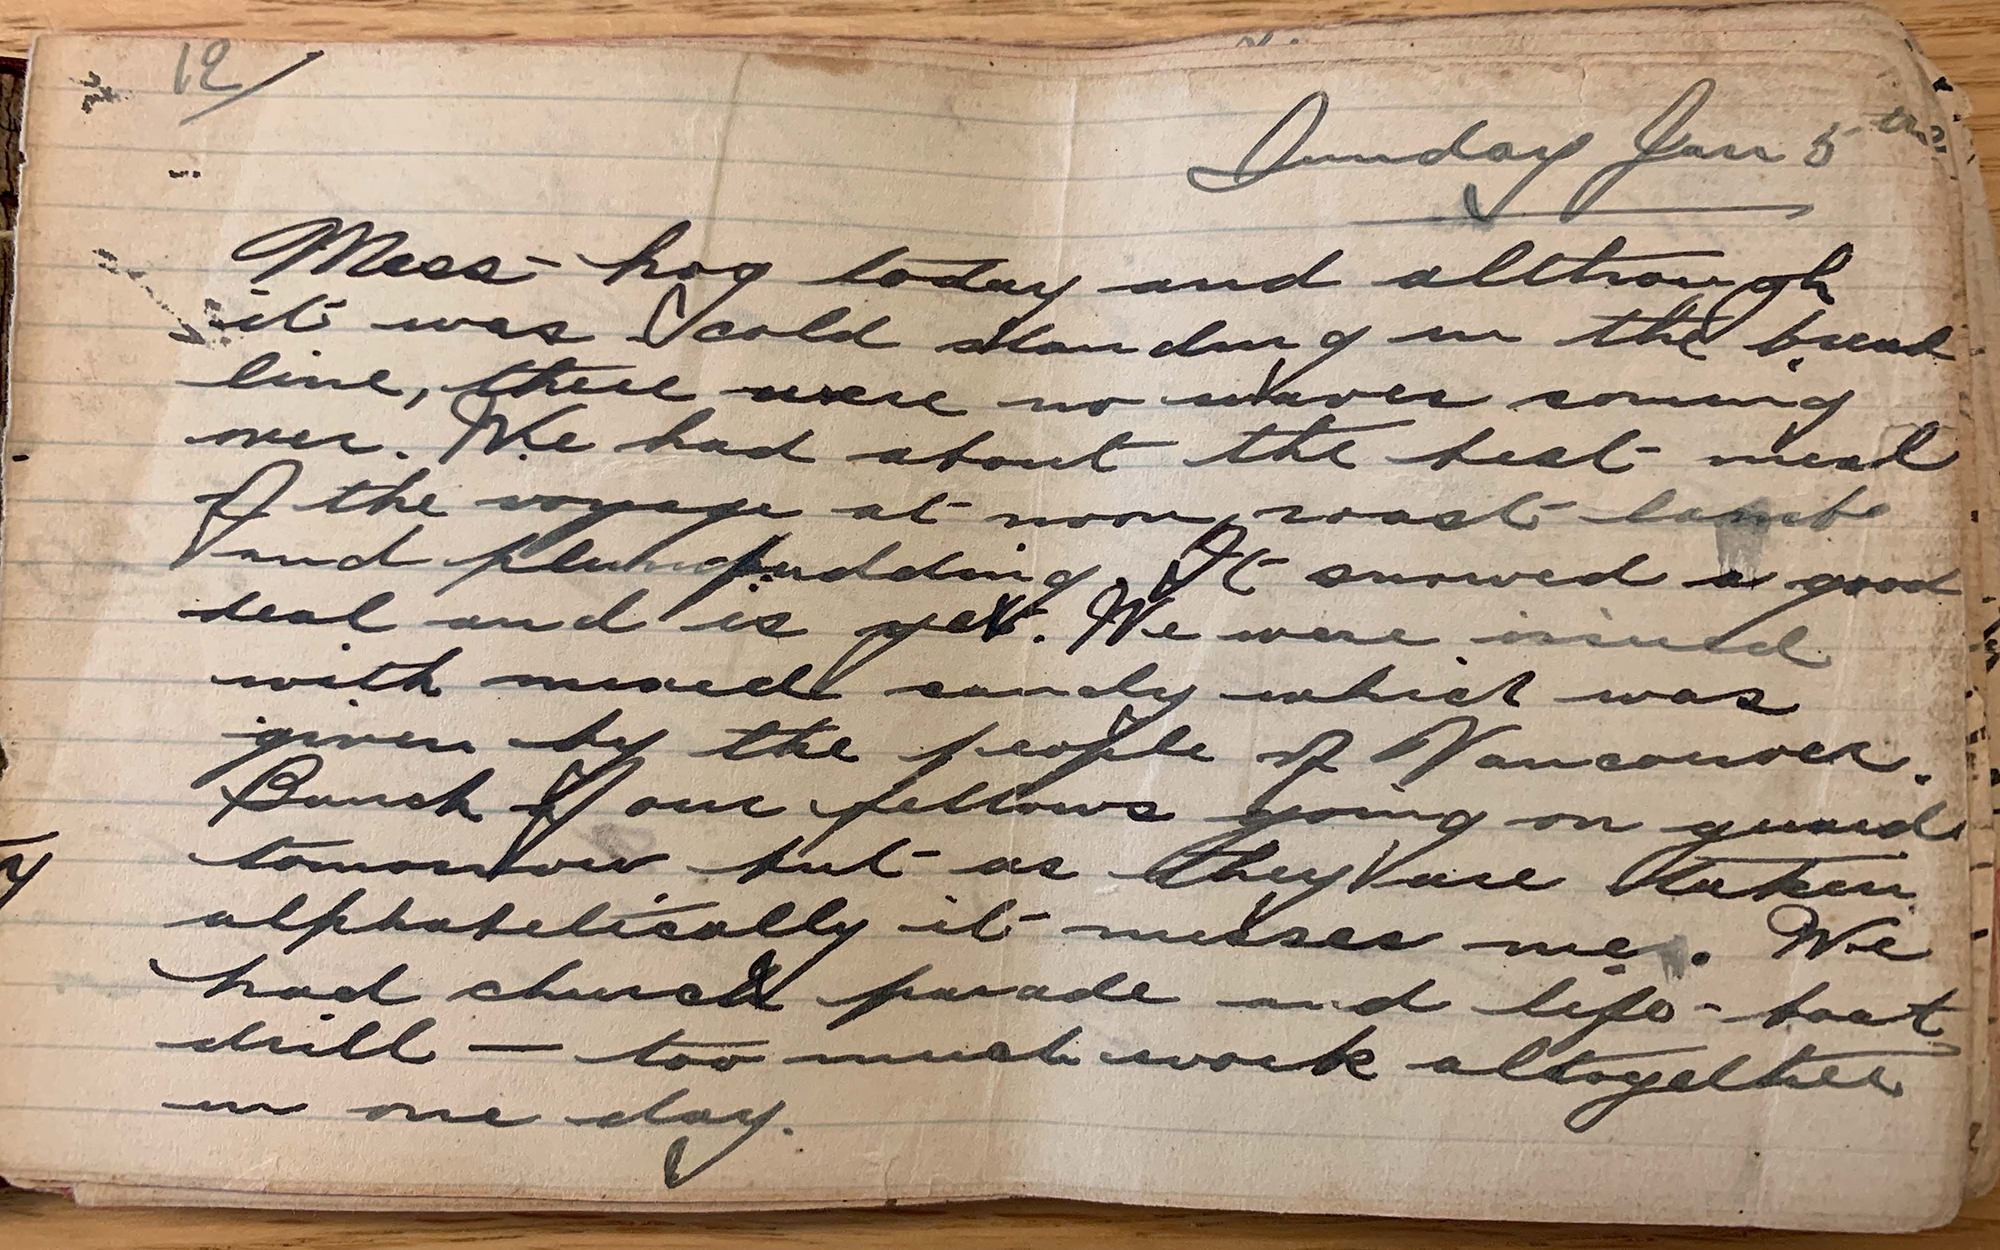 12/
Sunday Jan 5th
Mess-hog today and although
it was cold standing in the bread
line, there were no waves coming
over. We had about the best meal
of the voyage at noon, roast lamb
and plum pudding. It snowed a good
deal and is yet. We were issued
with mixed candy which was
given by the people of Vancouver.
Bunch of our fellows going on guard
tomorrow but as they are taken
alphabetically it misses me. We
had church parade and life-boat
drill — too much work altogether
in one day.